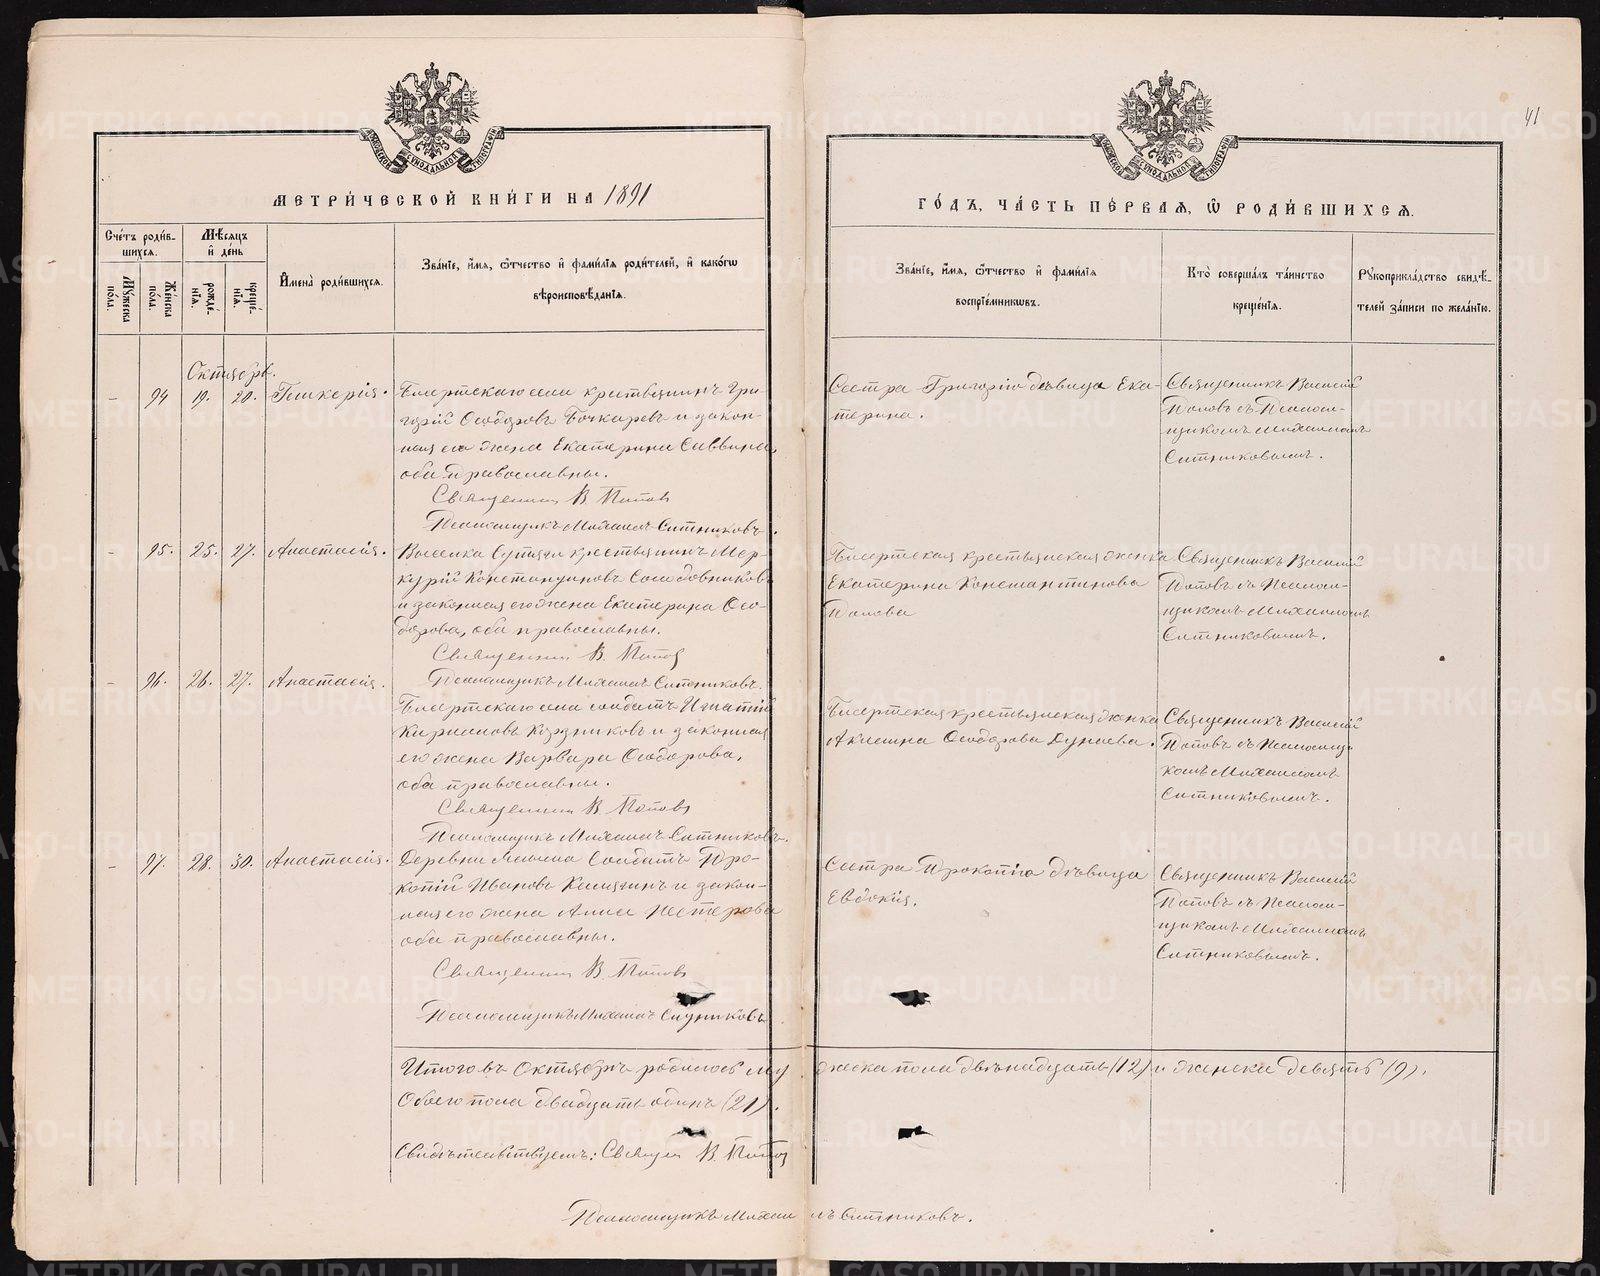 41
МЕТРИ́ЧЕСКОЙ КНИ́ГИ НА 1891
ГО́ДЪ, ЧА́СТЬ ПЕ́РВАЯ, Ѽ РОДИ́ВШИХСЯ.
Сче́тъ роди́в-
шихся.
Мѣсяцъ
и҆ де́нь
Му́жеска по́ла.
Же́нска по́ла.
рожде́-
нїя.
креще́-
нїя.
И҆мена̀ роди́вшихся.
Зва́нїе, и҆́мя, ѻ҆́тчество и҆ фами́лїя роди́телей, и҆ како́гѡ
вѣроисповѣ́данїя.
Зва́нїе, и҆́мя, ѻ҆́тчество и҆ фами́лїя
воспрїе́мникѡвъ.
Кто̀ соверша́лъ та́инство
креще́нїя.
Рꙋкоприкла́дство свидѣ́-
телей за́писи по жела́нїю.
Октябрь.
- 94 19. 20. Гликерія.
Бисертскаго села крестьянинъ Гри-
горій Ѳеодоровъ Бочкаревъ и закон-
ная его жена Екатерина Саввина,
оба православны.
Священникъ В. Поповъ
Псаломщикъ Михаилъ Ситниковъ.
Сестра Григорія дѣвица Ека-
терина.
Священникъ Василій
Поповъ съ Псалом-
щикомъ Михаиломъ
Ситниковымъ.
- 95. 25. 27. Анастасія.
крестьянинъ Мер-
курій Константиновъ
и законная его жена Екатерина Ѳео-
дорова, оба православны.
Священникъ В. Поповъ
Псаломщикъ Михаилъ Ситниковъ.
Бисертская крестьянская женка
Екатерина Константинова
Попова
Священникъ Василій
Поповъ съ Псалом-
щикомъ Михаиломъ
Ситниковымъ.
- 96. 26. 27. Анастасія.
Бисертскаго села солдатъ Игнатій
Кирилловъ и законная
его жена Варвара Ѳеодорова,
оба православны.
Священникъ В. Поповъ
Псаломщикъ Михаилъ Ситниковъ.
Бисертская крестьянская женка
Акилина Ѳеодорова Дунаева.
Священникъ Василій
Поповъ съ Псаломщи-
комъ Михаиломъ
Ситниковымъ.
- 97. 28. 30. Анастасія.
Деревни солдатъ Про-
копій Ивановъ и закон-
ная его жена Анна Нестерова
оба православны.
Священникъ В. Поповъ
Псаломщикъ Михаилъ Ситниковъ
Сестра Прокопія дѣвица
Евдокія.
Священникъ Василій
Поповъ съ Псалом-
щикомъ Михаиломъ
Ситниковымъ.
Итого въ Октябрѣ родилось мужеска пола двѣнадцать (12) и женска девять (9).
Обоего пола двадцать одинъ (21).
Свидѣтельствуемъ: Священ В. Поповъ
Псаломщикъ Михаилъ Ситниковъ.
METRIKI.GASO-URAL.RU